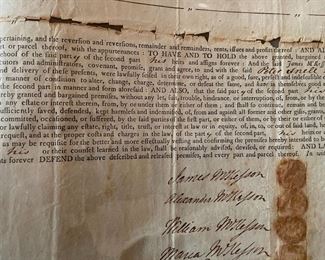 ertaining, and the reversion and reversions, remainder and remainders, rents, issues and profits thereof: AND AL
rt or parcel thereof, with the appurtenances: TO HAVE AND TO HOLD the above granted, bargained
hoof of the said party of the second part his heirs and assigns forever: And the said James McKe
cutors and administrators, covenant, promise, grant and agree, to and with the said
nd delivery of these presents, were lawfully seized in their own right, as of a good, perfect, and indefeasible
manner of condition to alter, change, charge, determine, or defeat the same, and have in
second part in manner and form aforesaid: AND ALSO, that the said party of the second part his
nd enjoy, without any let, suit, trouble, hindrance, or interruption, of, from, or by the
any estate or interest therein, from, by, or under them or either of them; and shall continue and
ufficiently saved, defended, kept harmless and indemnified, of, from and against all former or other gifts, grants
committed, occasioned, or suffered, by the said parties of the first part, or either of them, or by their or either of
or lawfully claiming any estate, right, title, trust, or interest at law or in equity, of, in, to, or out of said land,
request, and at the proper costs and charges in the law, of the party of the second part, his heirs or
s as may be requisite for the better and more effectually vesting and confirming the premises hereby intended to
his or their counsel learned in the law, shall be reasonably advised, devised, or required: AND LA
ents forever DEFEND the above described and released premises, and every part and parcel thereof. In
James McKesson
Alexander McKesson
William McKesson
Maria McKesson